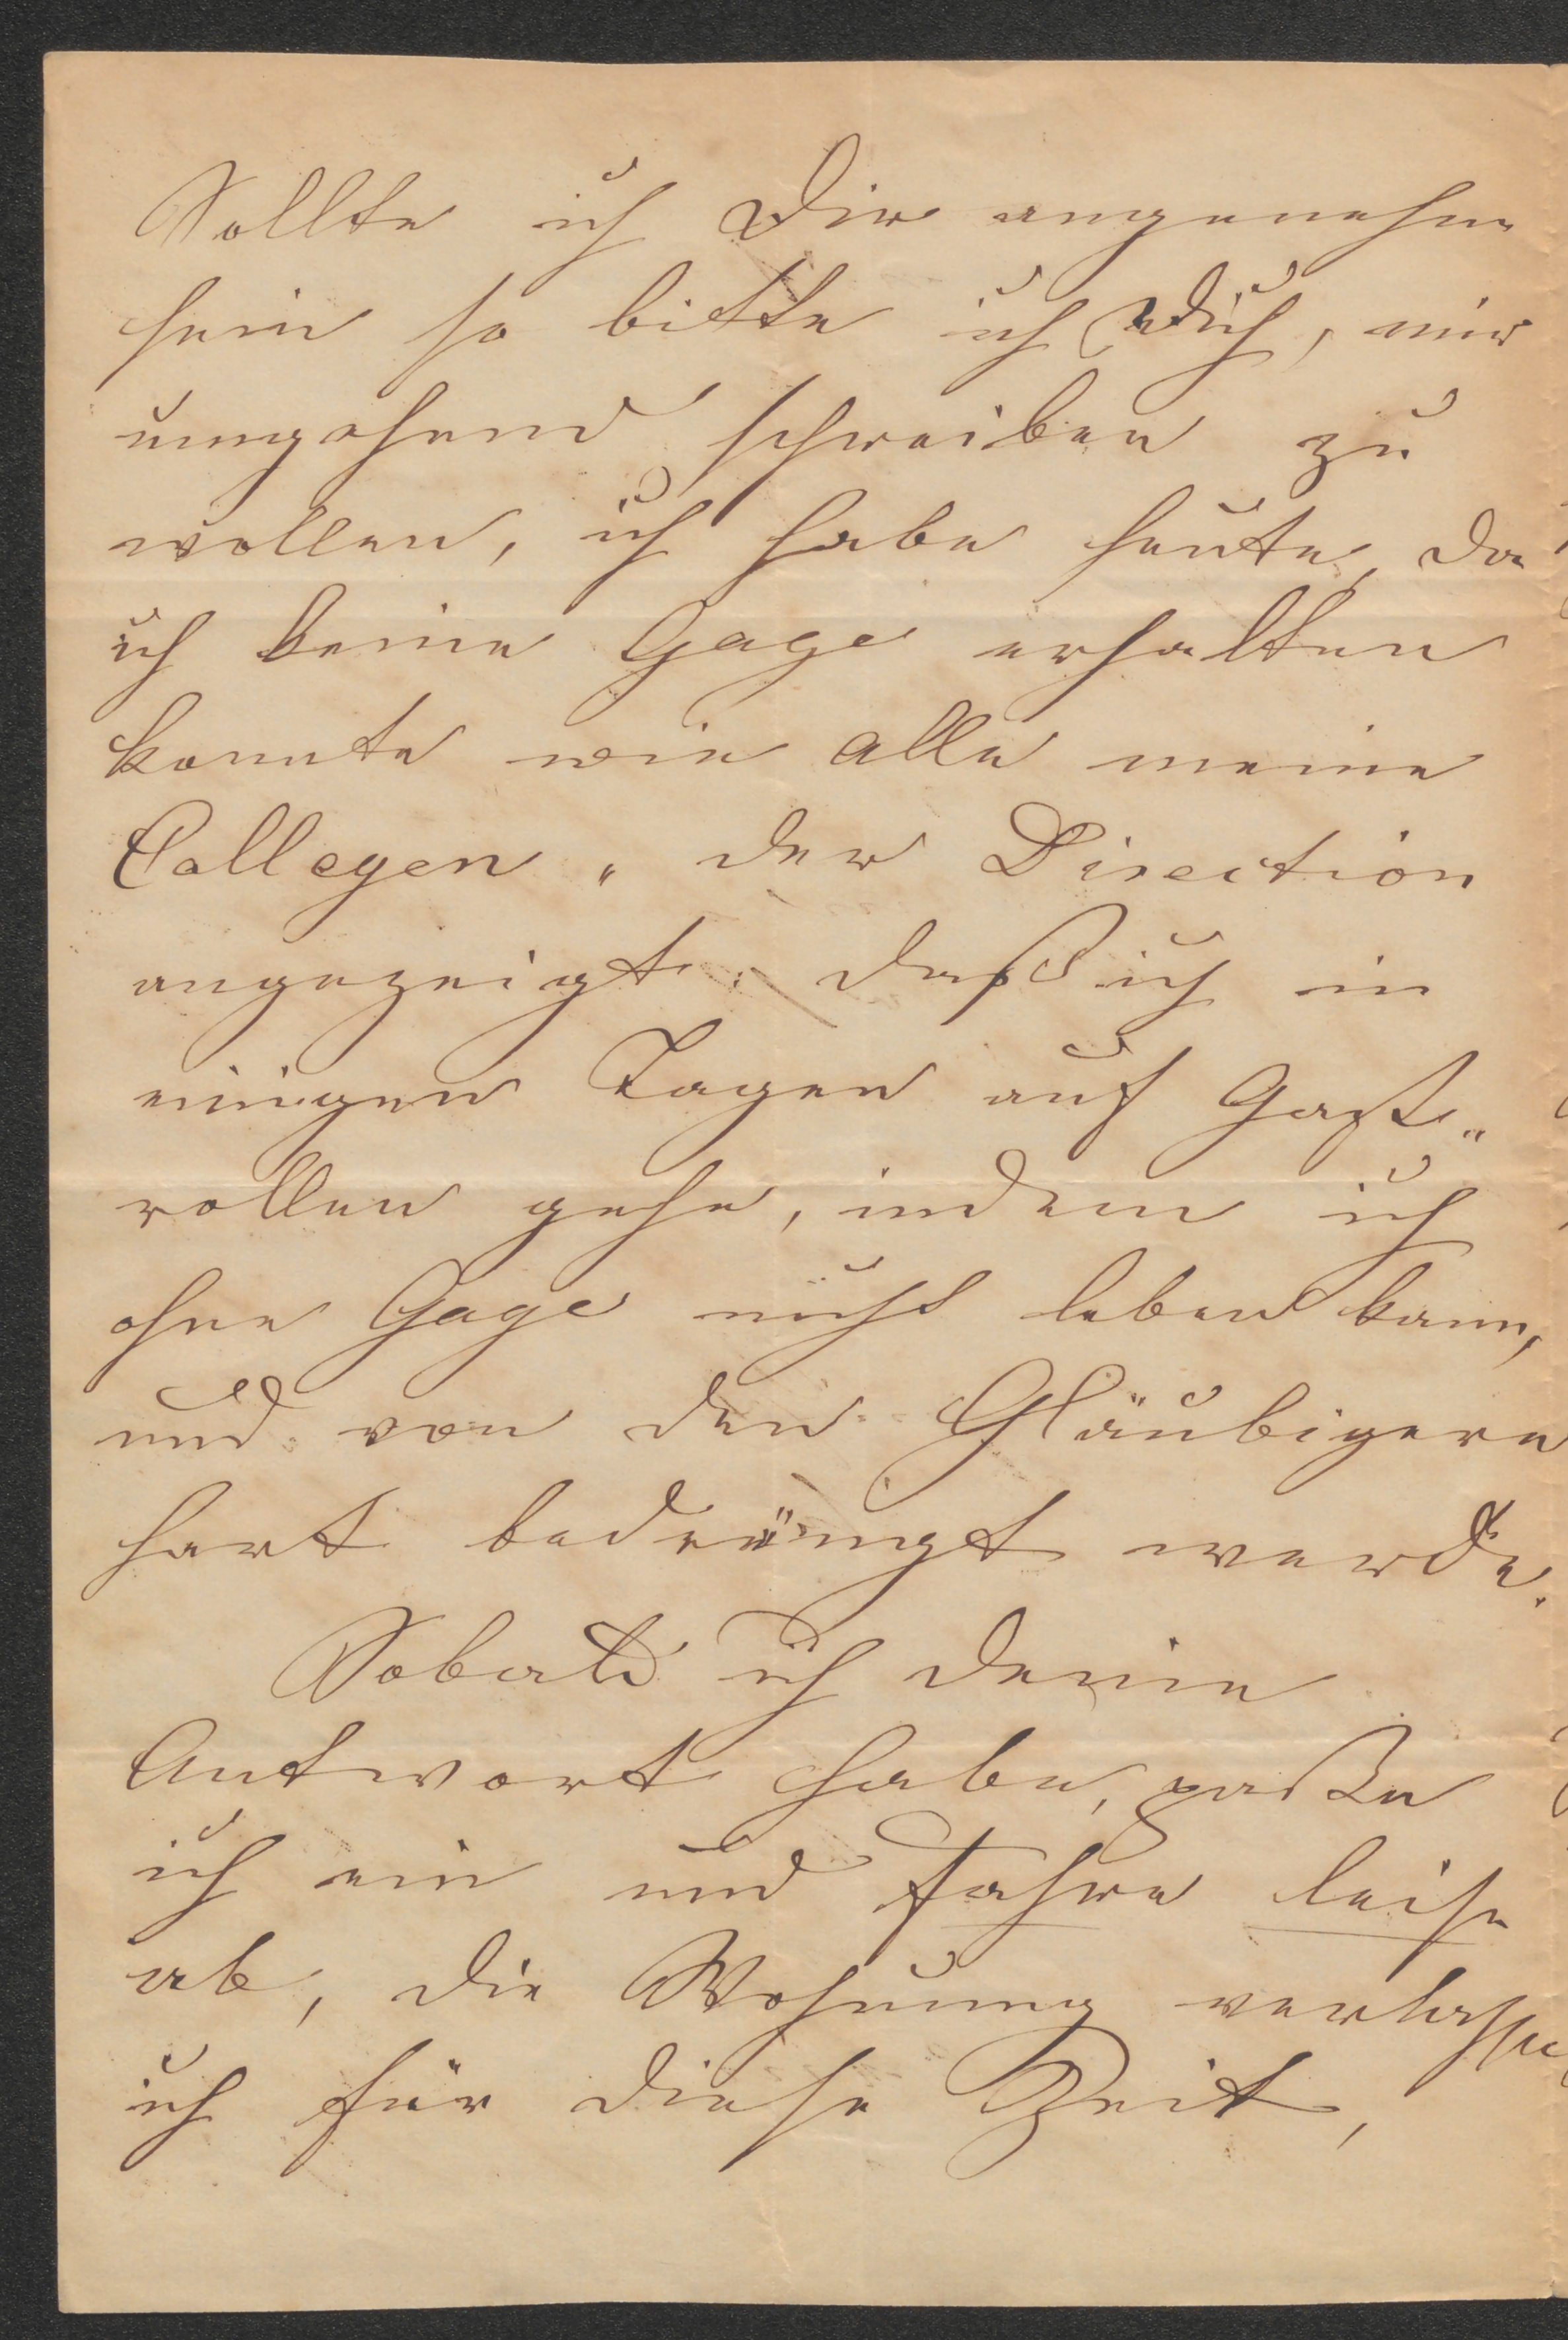 Sollte ich Dir angenehm
sein so bitte ich Dich, mir
umgehend schreiben zu
wollen, ich habe heute, da
ich keine Gage erhalten
konnte wie alle meine
Collegen, der Direction
angezeigt, daß ich in
einigen Tagen auf Gast„
rollen gehe, indem ich
ohne Gage nicht leben kann,
und von den Gläubigern
hart bedrängt werde.
Sobald ich deine
Antwort habe, paße
ich ein und fahre leise
ab, die Wohnung verlasse
ich für diese Zeit,